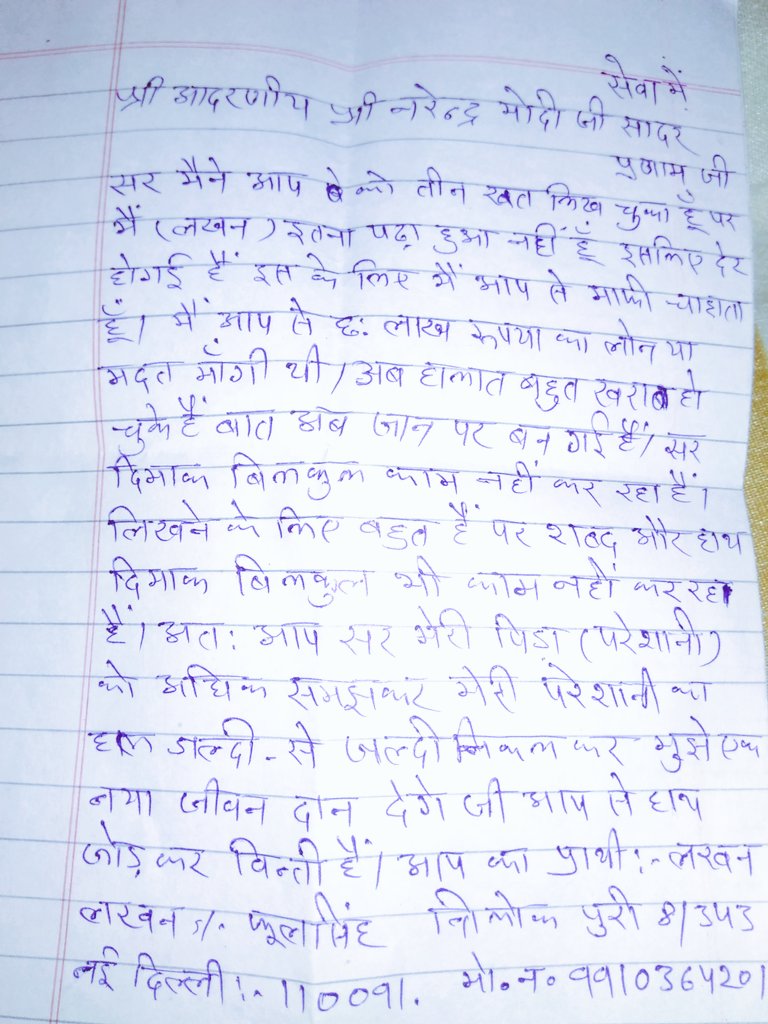 सेवा में
श्री आदरणीय श्री नरेन्द्र मोदी जी सादर
प्रणाम जी
सर मैने आप को तीन खत लिख चुका हूँ पर
मैं (लखन) इतना पढ़ा हुआ नहीं हूँ इसलिए देर
होगई हैं इस के लिए मैं आप से माफी चाहाता
हूँ। मैं आप से छ: लाख रूपया का लोन या
मदत माँगी थी। अब हालात बहुत खराब हो
चुके हैं बात अब जान पर बन गई हैं। सर
दिमाक बिलकुल काम नहीं कर रहा हैं।
लिखने के लिए बहुत हैं पर शब्द और हाथ
दिमाक बिलकुल भी काम नहीं कर रहा
हैं। अत: आप सर मेरी पिडा (परेशानी)
को अधिक समझकर मेरी परेशानी का
हल जल्दी-से जल्दी निकल कर मुझे एक
नया जीवन दान देगे जी आप से हाथ
जोड़ कर विन्ती हैं। आप का प्राथी:- लखन
लखन s/. फूलसिंह त्रिलोक पुरी 8/343
नई दिल्ली:- 110091. मो. न. ९९10364201